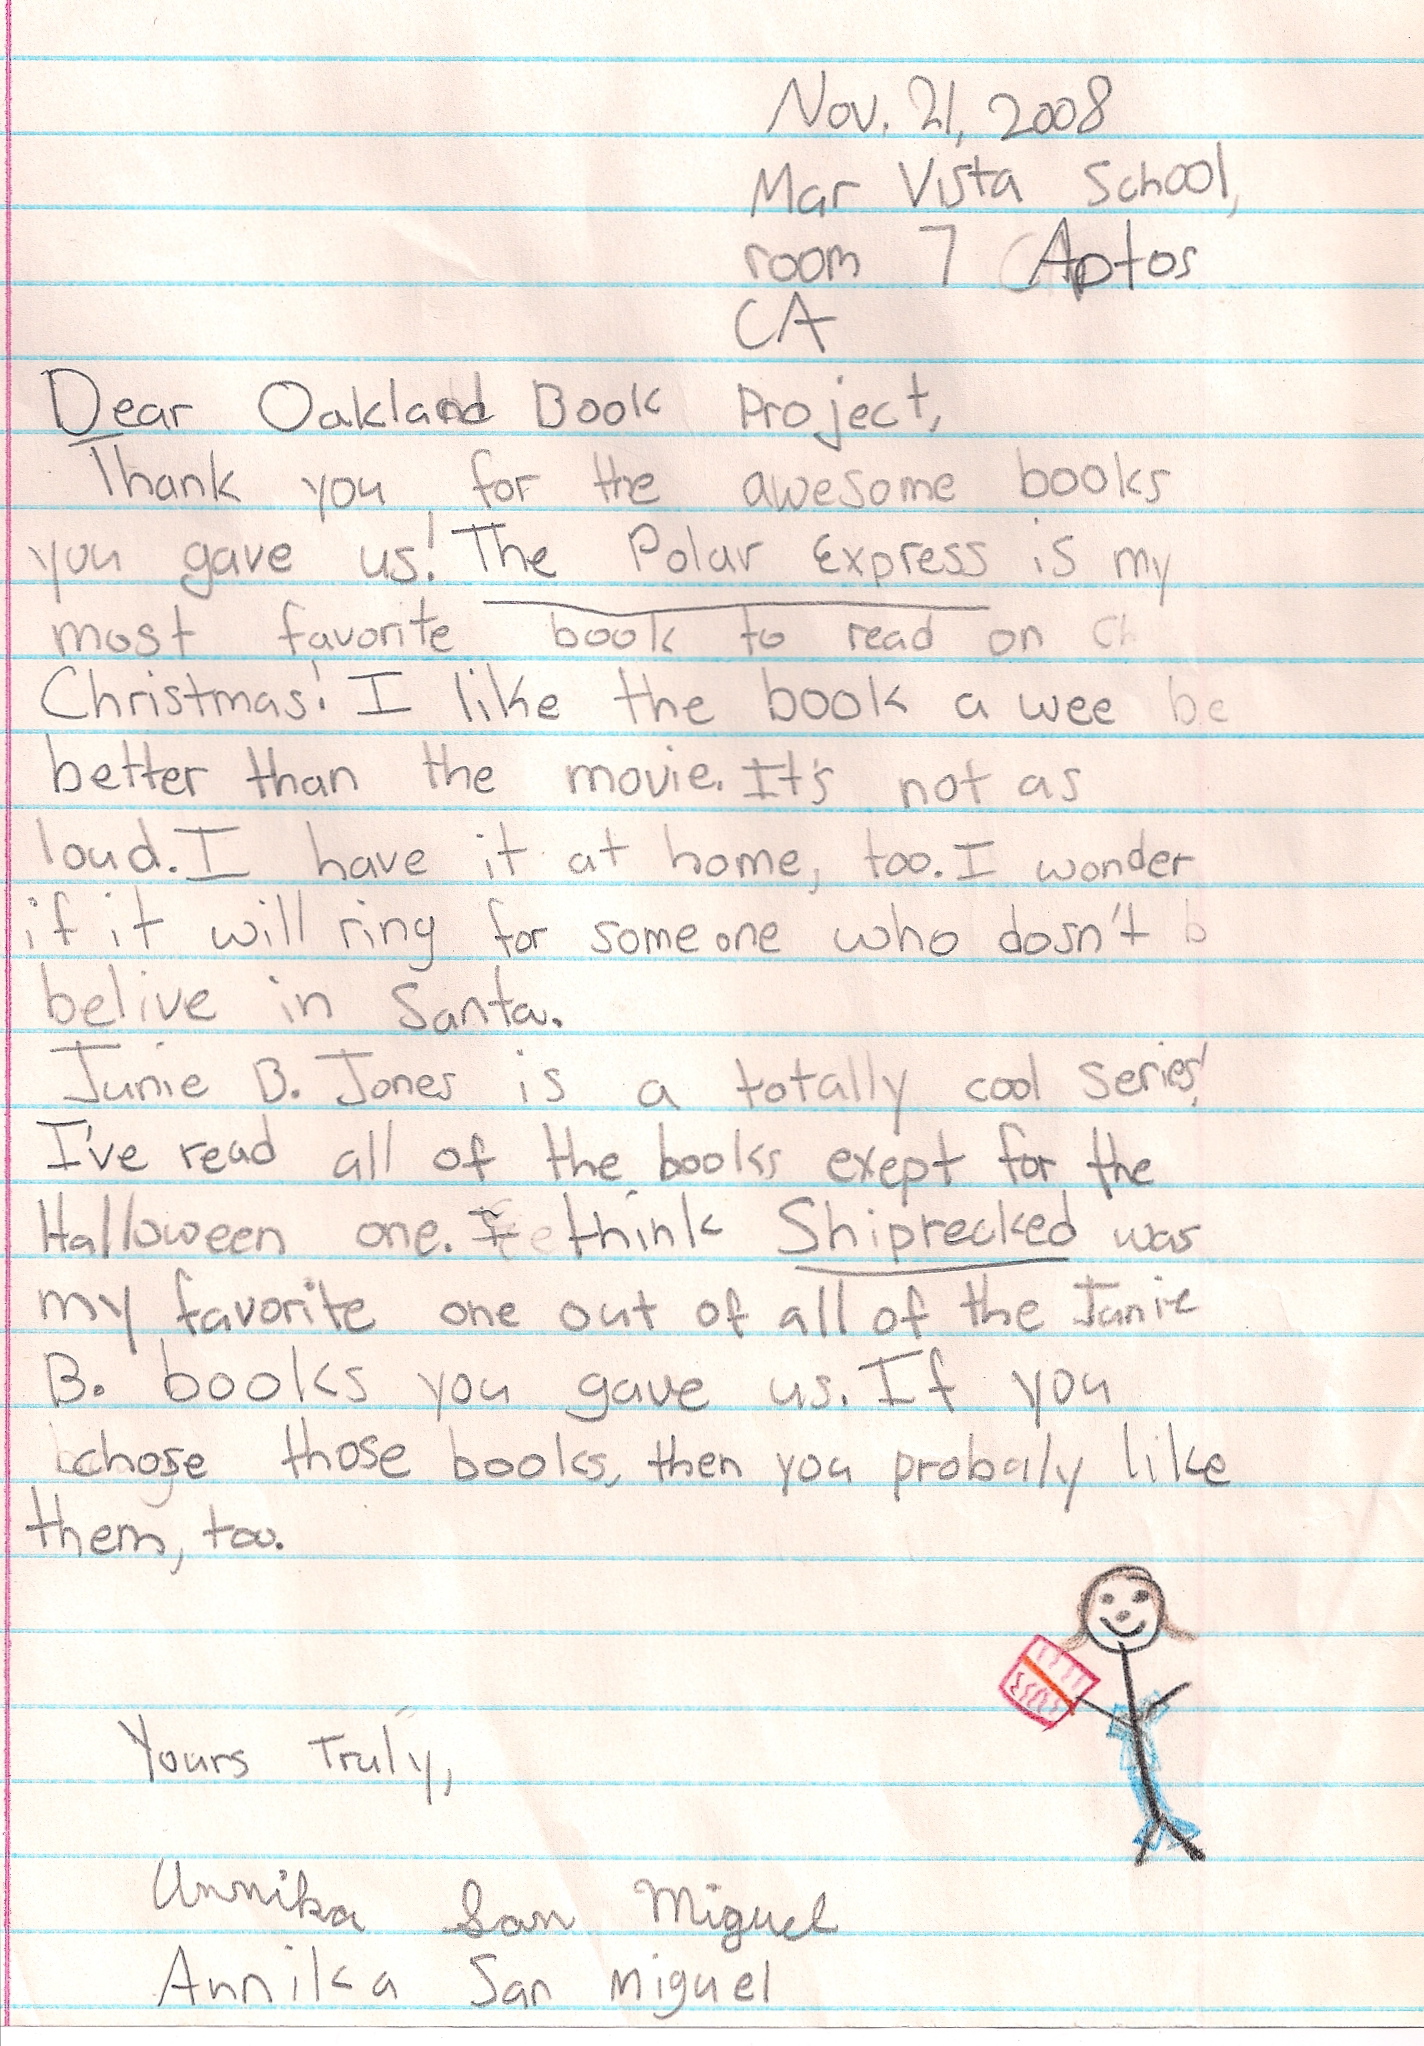 Nov. 21, 2008
Mar Vista School,
room 7 Aptos
CA
Dear Oakland Book Project,
Thank you for the awesome books
you gave us! The Polar Express is my
most favorite book to read on Ch
Christmas! I like the book a wee be
better than the movie. It's not as
loud. I have it at home, too. I wonder
if it will ring for someone who dosn't b
belive in Santa.
Junie B. Jones is a totally cool series!
I've read all of the books exept for the
Halloween one. I think Shiprecked was
my favorite one out of all of the Junie
B. books you gave us. If you
chose those books, then you probaly like
them, too.
Yours Truly,
Annika San Miguel
Annika San Miguel